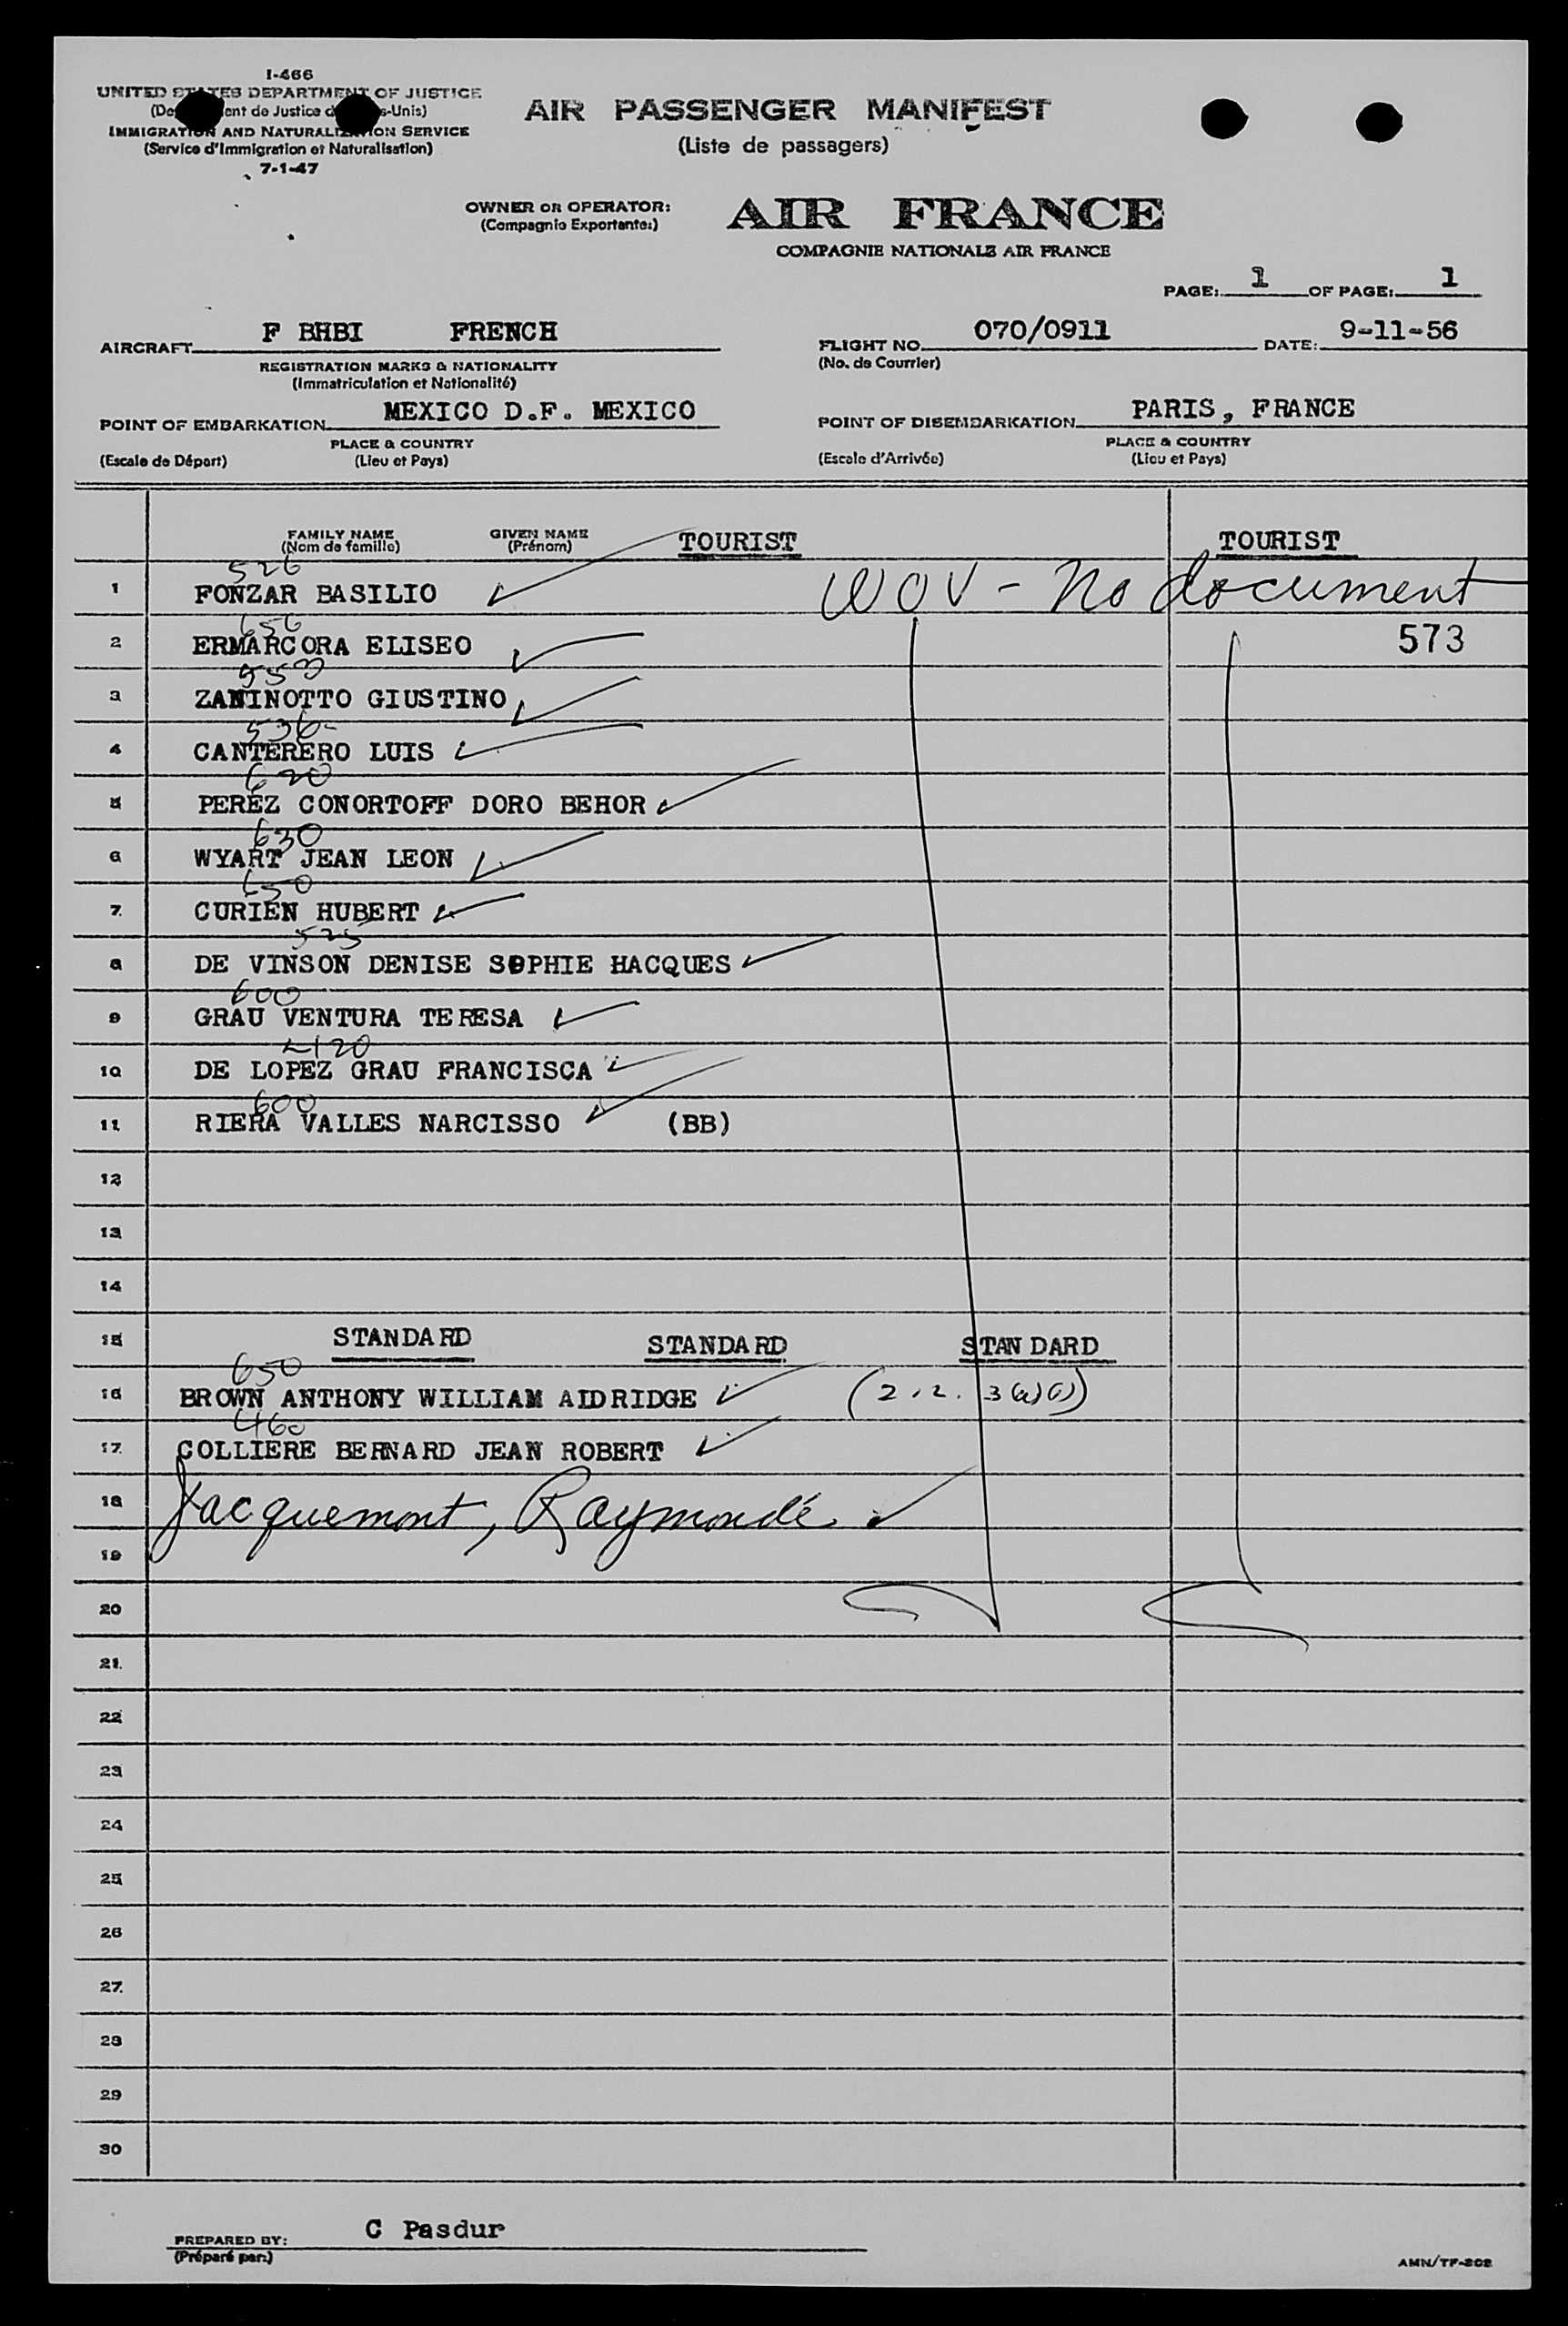 I-466
UNITED STATES DEPARTMENT OF JUSTICE
ent de Justice s-Unis)
IMMIGRATION AND NATURALIZATION SERVICE
(Service d'Immigration et Naturalisation)
7-1-47
AIR PASSENGER MANIFEST
(Liste de passagers)
OWNER OR OPERATOR:
(Compagnie Exportante:)
AIR FRANCE
COMPAGNIE NATIONALE AIR FRANCE
PAGE: 1 OF PAGE: 1
AIRCRAFT F BHBI FRENCH
REGISTRATION MARKS & NATIONALITY
(Immatriculation et Nationalité)
FLIGHT NO. 070/0911 DATE: 9-11-56
(No. de Courrier)
POINT OF EMBARKATION MEXICO D.F. MEXICO
PLACE & COUNTRY
(Escale de Départ) (Lieu et Pays)
POINT OF DISEMBARKATION PARIS, FRANCE
PLACE & COUNTRY
(Escale d'Arrivée) (Lieu et Pays)
FAMILY NAME GIVEN NAME TOURIST TOURIST
(Nom de famille) (Prénom)
526
1 FONZAR BASILIO WOV - No document
656
2 ERMARCORA ELISEO 573
3 ZANINOTTO GIUSTINO
536
4 CANTERERO LUIS
620
5 PEREZ CONORTOFF DORO BEHOR
630
6 WYART JEAN LEON
650
7 CURIEN HUBERT
525
8 DE VINSON DENISE SOPHIE HACQUES
600
9 GRAU VENTURA TERESA
420
10 DE LOPEZ GRAU FRANCISCA
600
11 RIERA VALLES NARCISSO (BB)
12
13
14
15 STANDARD STANDARD STANDARD
650
16 BROWN ANTHONY WILLIAM AIDRIDGE
460
17 COLLIERE BERNARD JEAN ROBERT
18 Jacquemont, Raymonde
19
20
21
22
23
24
25
26
27
28
29
30
PREPARED BY: C Pasdur
(Préparé par:)
AMN/TF-202